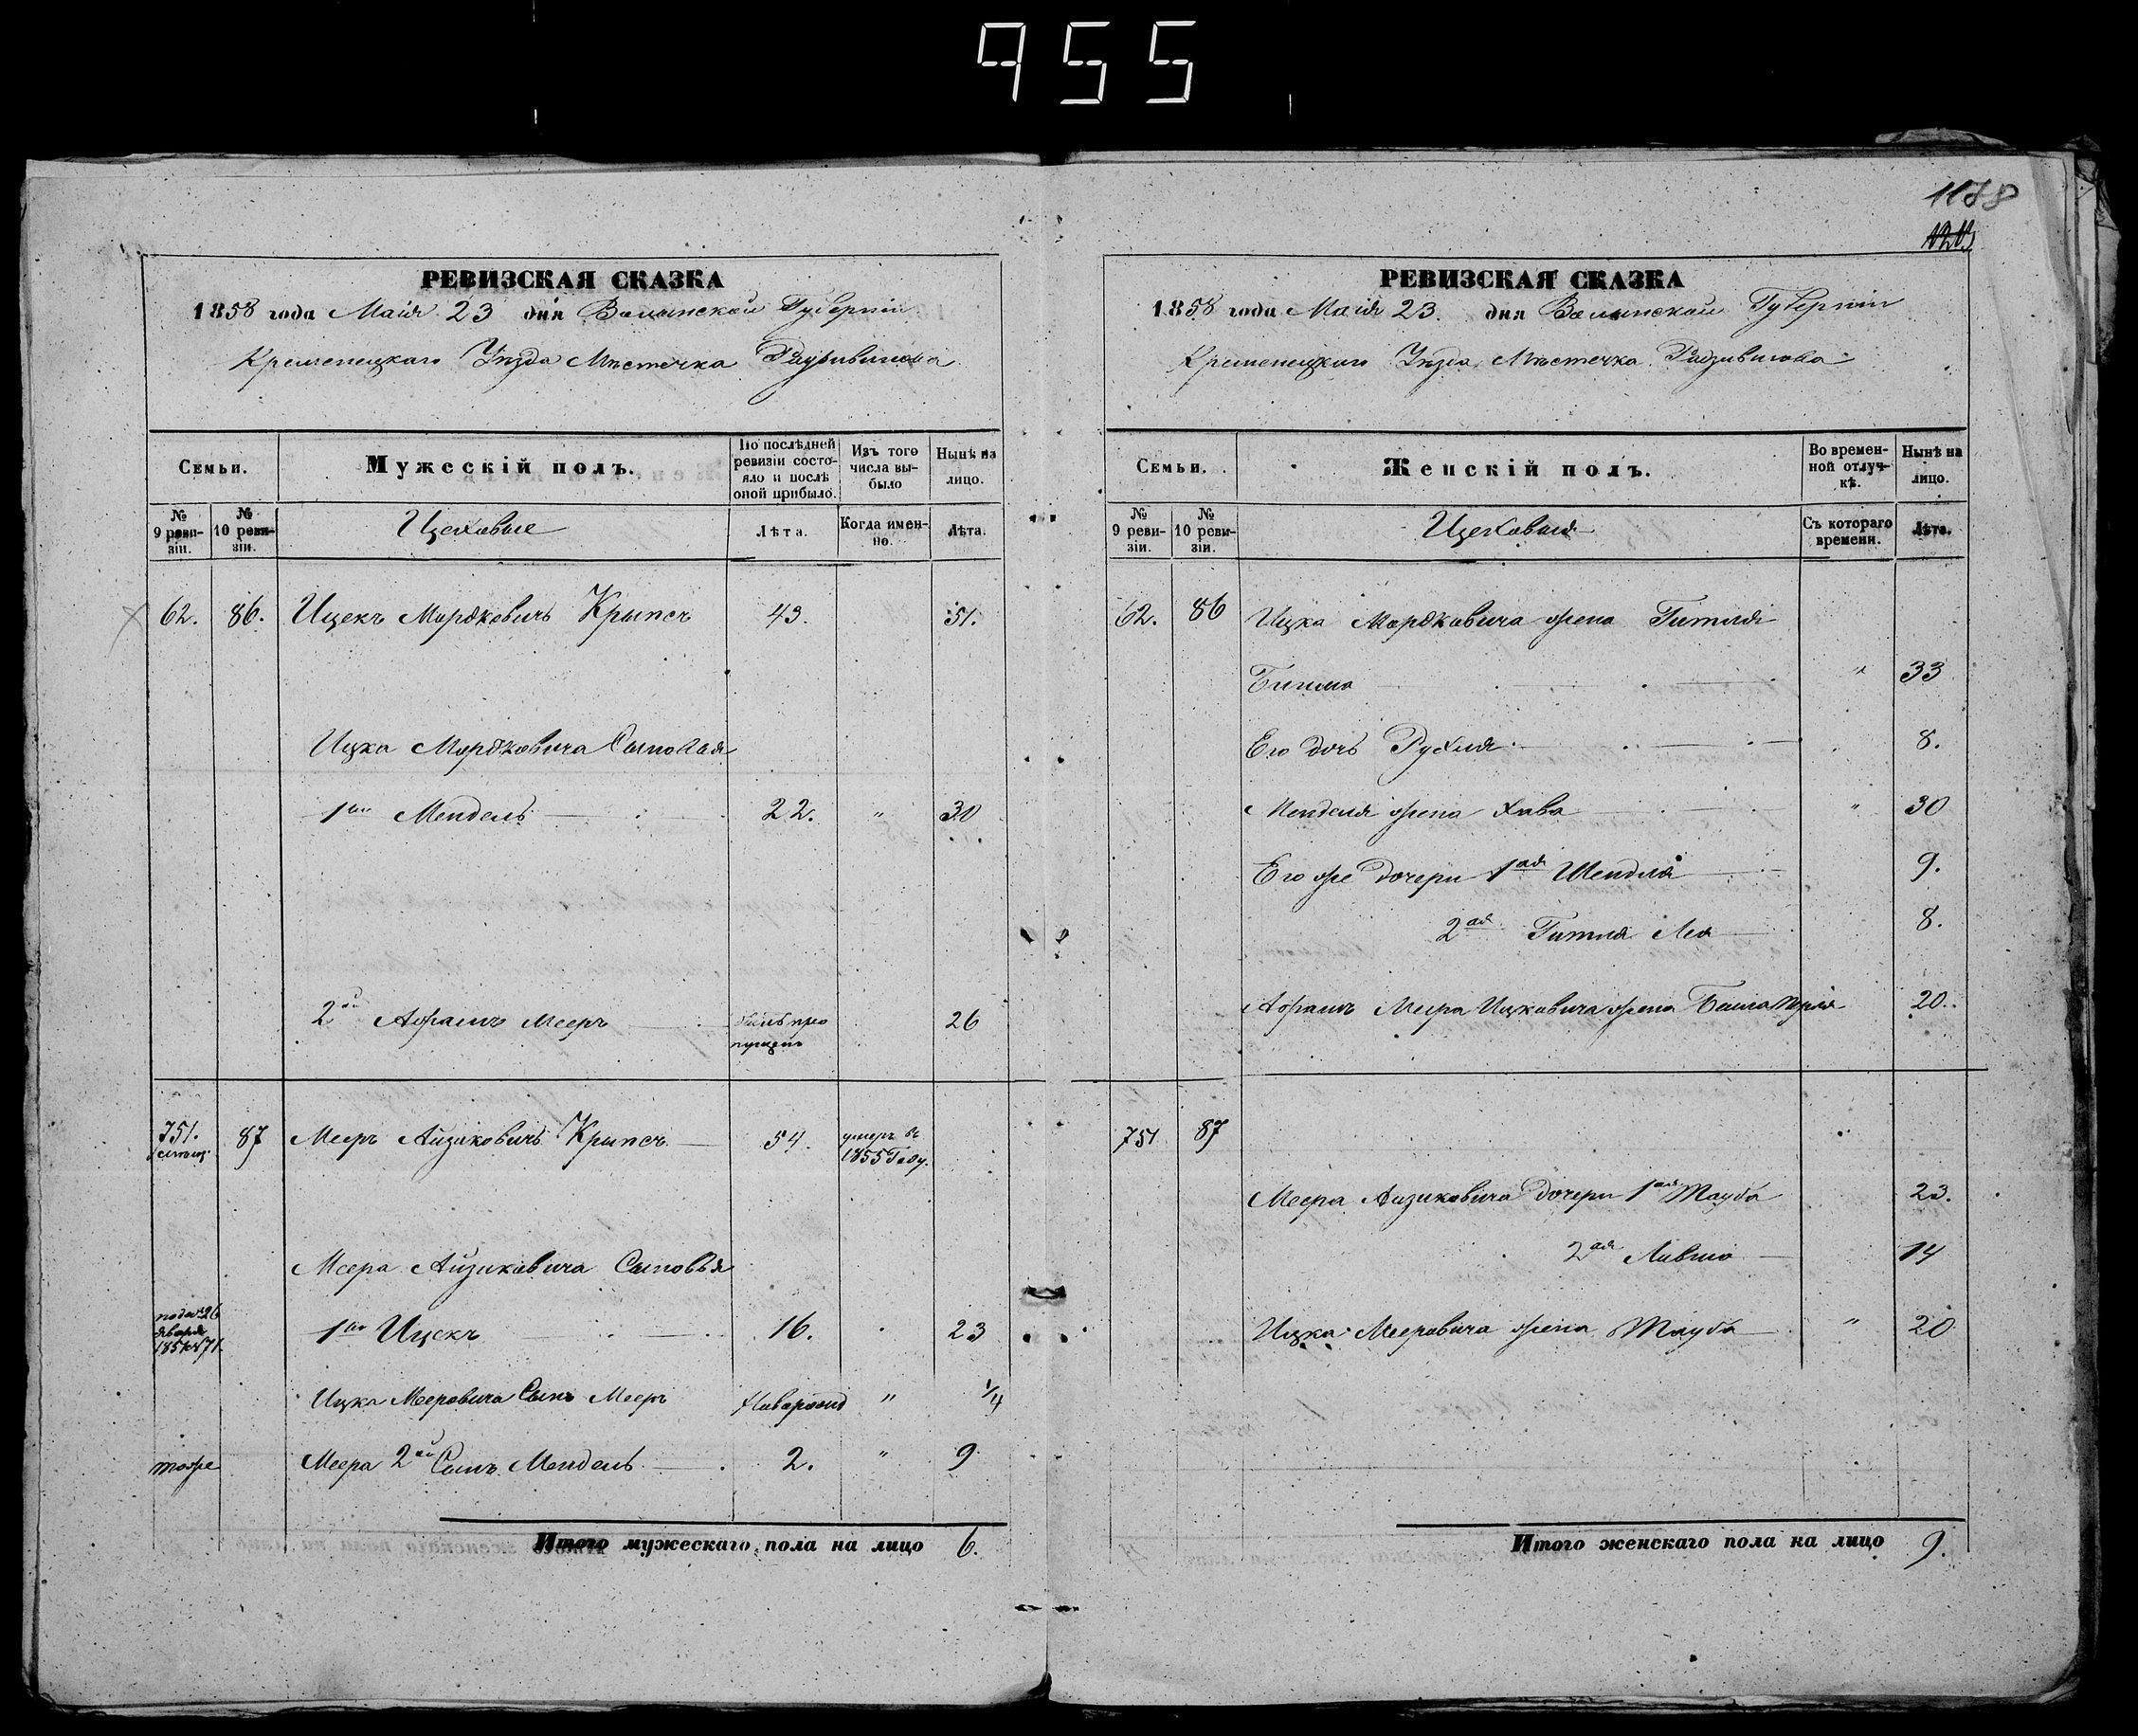 955
1178
РЕВИЗСКАЯ СКАЗКА
1858 года Маія 23 дня Волынской Губерніи
Кременецкаго Уѣзда Мѣстечка Радзивилова
Семьи.
Мужескій полъ.
По послѣдней ревизіи состояло и послѣ оной прибыло.
Изъ того числа выбыло
Нынѣ на лицо.
№ 9 ревизіи.
№ 10 ревизіи.
Цеховые
Лѣта.
Когда именно.
Лѣта.
62. 86. Ицекъ Мордковичъ Крыпсъ 43. 51.
Ицка Мордковича Сыновья
1ый Мендель 22. " 30
2ой Абрамъ Мееръ былъ пропущенъ 26
751. 87 Мееръ Айзиковичъ Крыпсъ 54. умеръ въ 1855 Году.
Меера Айзиковича Сыновья
1ый Ицекъ 16. 23
Ицка Меировича Сынъ Мееръ Новорожд " 1/4
тоже Меера 2ой Сынъ Мендель 2. " 9
Итого мужескаго пола на лицо 6.
РЕВИЗСКАЯ СКАЗКА
1858 года Маія 23. дня Волынской Губерніи
Кременецкаго Уѣзда Мѣстечка Радзивилова
Семьи.
Женскій полъ.
Во временной отлучкѣ.
Нынѣ на лицо.
№ 9 ревизіи.
№ 10 ревизіи.
Цеховыя
Съ котораго времени.
Лѣта.
62. 86 Ицка Мордковича жена Гитля
" 33
Его дочь Рухля 8.
Менделя жена Хава " 30
Его же дочери 1ая Шендля 9.
2ая Гитля Лея 8.
Абрамъ Меера Ицковича жена Бейла Перля 20.
751 87
Меера Айзиковича дочери 1ая Тауба 23.
2ая 14
Ицка Мееровича жена Тауба " 20
Итого женскаго пола на лицо 9.